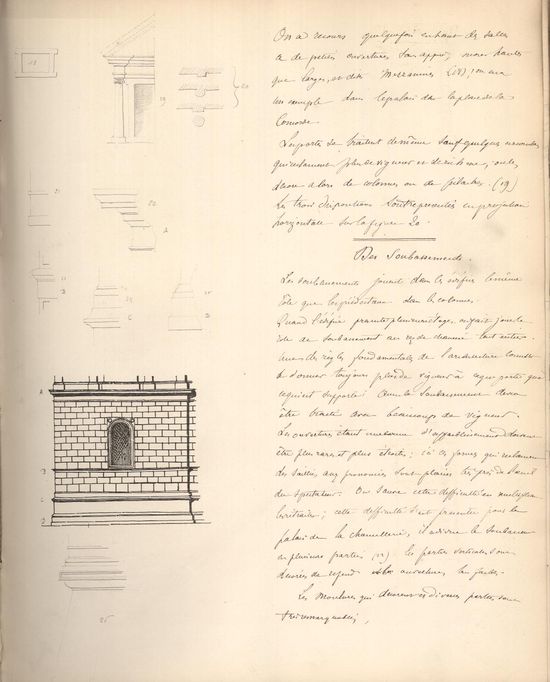 On a recours quelquefois en haut des salles
a de petites ouvertures sans appui, moins hautes
que larges, et dites Mezzanines (18); on en a
un exemple dans le palais de la place de la
Concorde.
Les portes se traitent de même sauf quelques
qui réclament plus de vigueur et de richesse, on les
décore alors de colonnes ou de pilastres. (19)
Les trois dispositions sont représentées en projection
horizontale sur la figure 20.
Des Soubassements.
Les soubassements jouent dans les édifices le même
rôle que les piédestaux dans les colonnes.
Quand l'édifice présente plusieurs étages, on fait jouer le
rôle de soubassement au rez de chaussée tout entier.
Une des règles fondamentales de l'architecture consiste
à donner toujours plus de vigueur à ce qui porte qu'à
ce qui est supporté. Ainsi le soubassement devra
être traité avec beaucoup de vigueur.
Les ouvertures étant une cause d'affaiblissement devront
être plus rares et plus étroites;
des saillies trop prononcées sont placées très près de l'œil
du spectateur. On sauve cette difficulté en multipliant
les retraits; cette difficulté s'est présentée pour le
palais de la chancellerie, il a divisé le soubassement
en plusieurs parties les parties verticales sont
décorées de refends
Les Moulures qui décorent ces diverses parties sont
très remarquables,
18
19
20
21
22
A
B
C
B
A
B
C
D
25